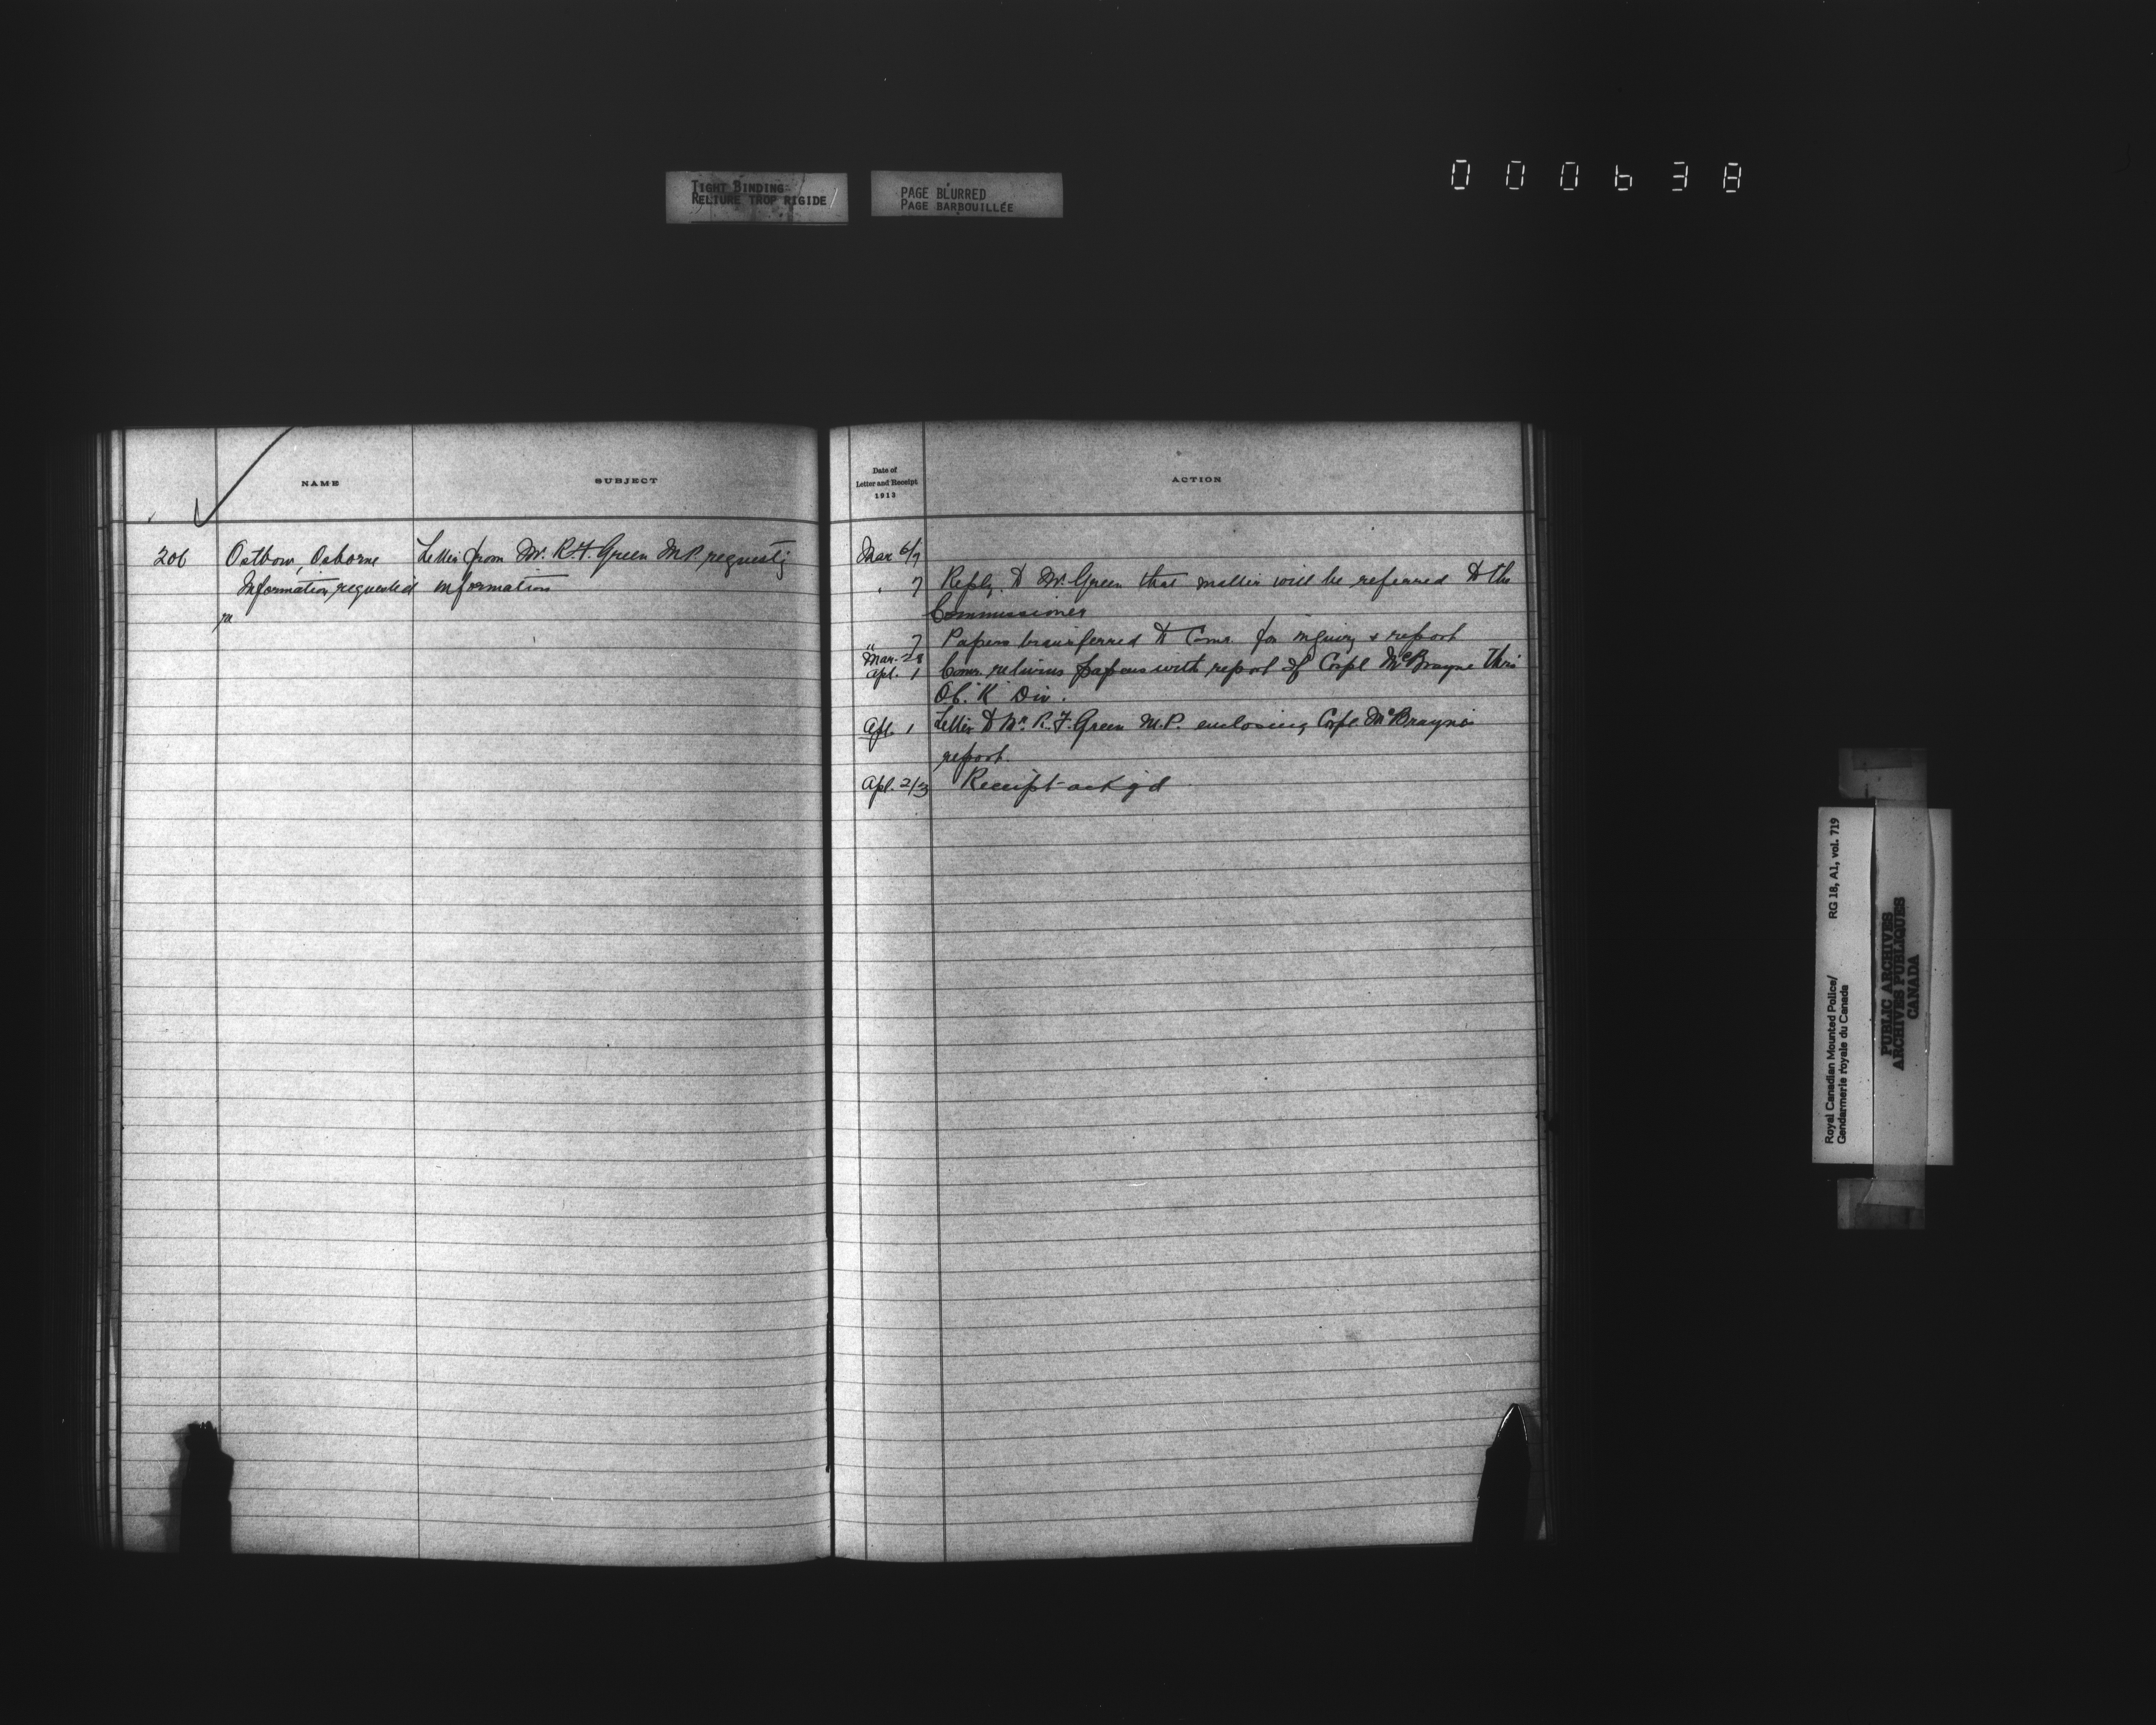 TIGHT BINDING
RELIURE TROP RIGIDE
PAGE BLURRED
PAGE BARBOUILLÉE
000638
NAME
SUBJECT
Date of
Letter and Receipt
1913
ACTION
206 Ostbow, Osborne Letter from Mr. R.F. Green M.P. requestg Mar 6/7
Information requested information
re
" 7 Reply to Mr. Green that matter will be referred to the
Commissioner
" 7 Papers transferred to Comr. for inquiry & report
Mar. 28
Apl. 1 Comr. returns papers with report of Corpl McBrayne thro
O.C. "K" Div.
Apl. 1 Letter to Mr. R. F. Green M.P. enclosing Corpl. McBrayne's
report.
Apl. 2/3 Receipt ack'g'd
Royal Canadian Mounted Police/ RG 18, A1, vol. 719
Gendarmerie royale du Canada
PUBLIC ARCHIVES
ARCHIVES PUBLIQUES
CANADA